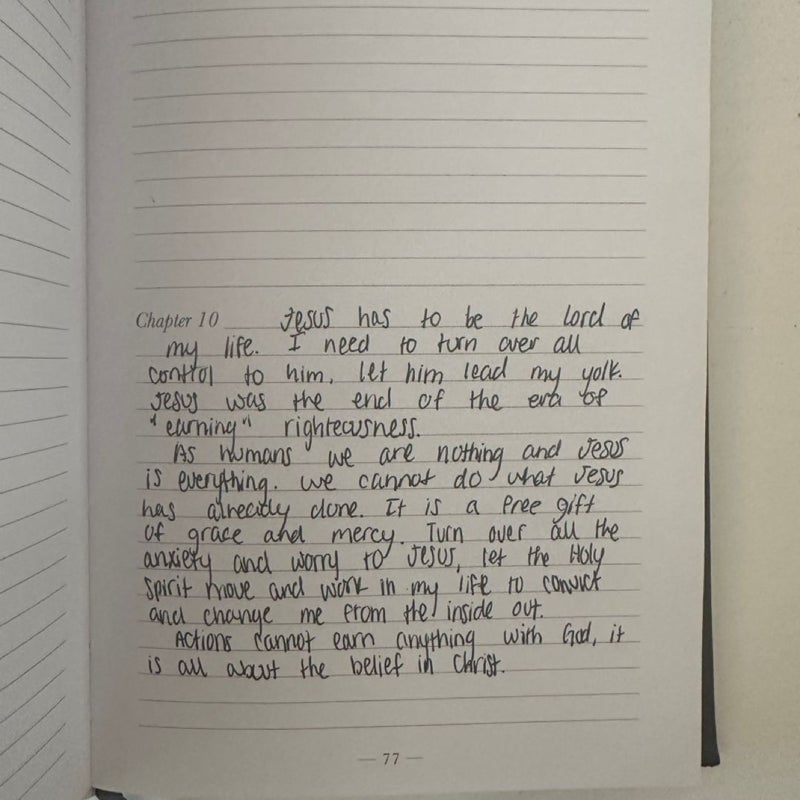 Chapter 10 Jesus has to be the lord of
my life. I need to turn over all
control to him, let him lead my yolk.
Jesus was the end of the era of
"earning" righteousness.
As humans we are nothing and Jesus
is everything. we cannot do what Jesus
has already done. It is a free gift
of grace and mercy. Turn over all the
anxiety and worry to Jesus, let the Holy
Spirit move and work in my life to convict
and change me from the inside out.
Actions cannot earn anything with God, it
is all about the belief in Christ.
— 77 —